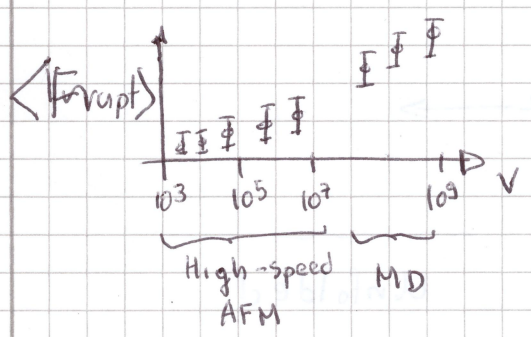 <Frupt>
10³ 10⁵ 10⁷ 10⁹ V
High-speed MD
AFM